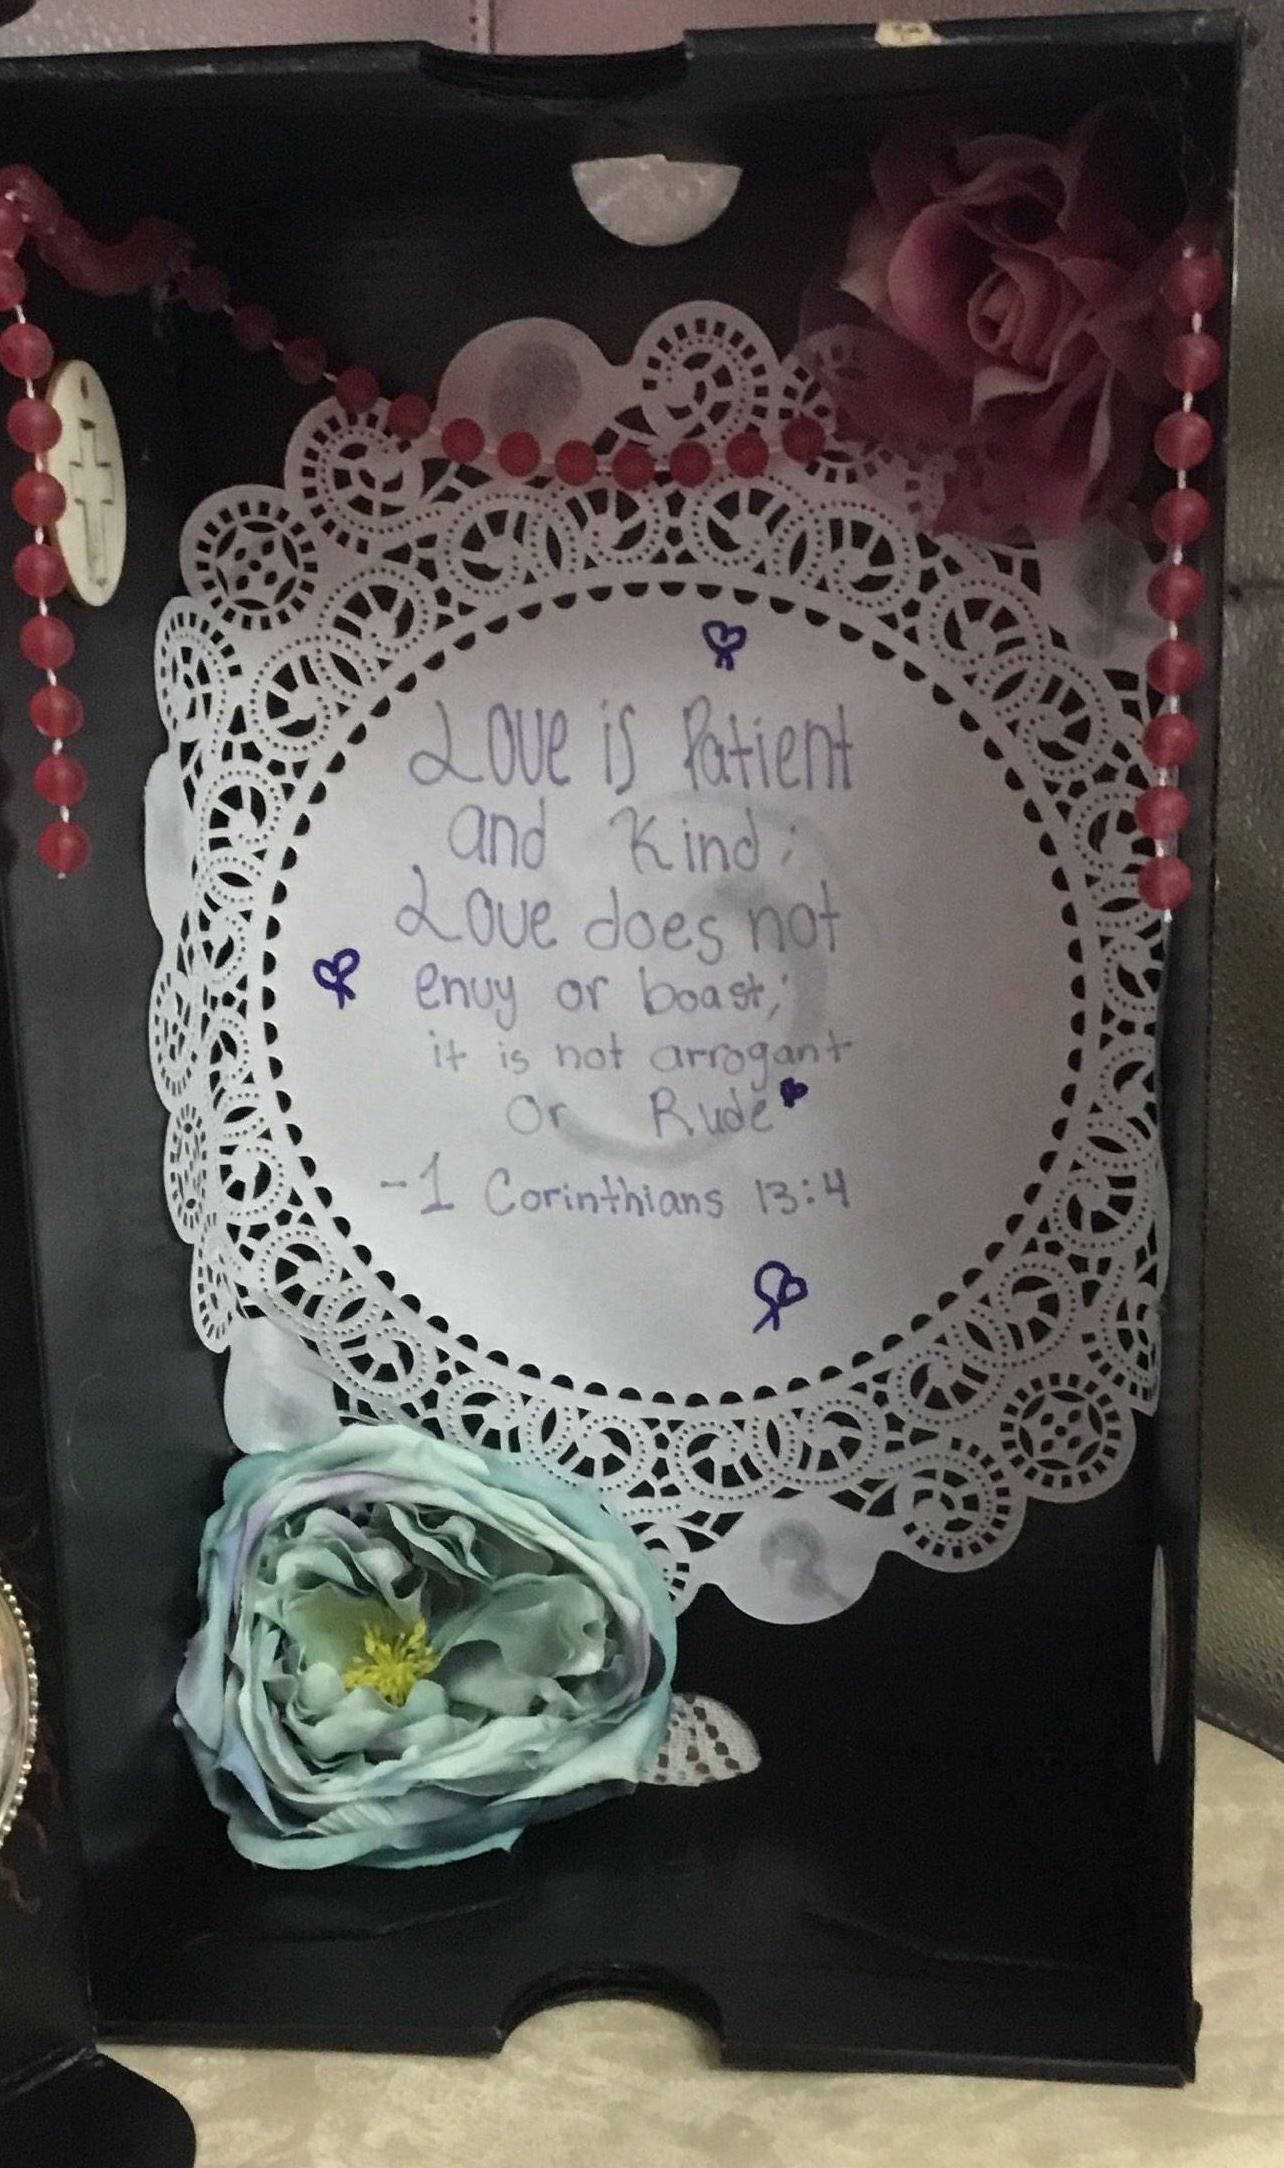 Love is Patient
and Kind;
Love does not
envy or boast;
it is not arrogant
Or Rude
-1 Corinthians 13:4